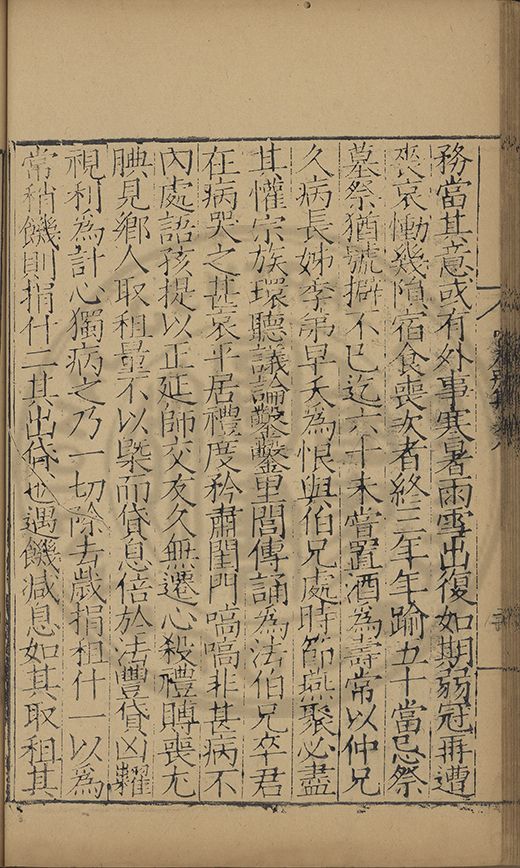 務當其意或有外事寒暑雨雪出復如期弱冠再遭
喪哀慟幾隕宿食喪次者終三年年踰五十當忌祭
墓祭猶號擗不已迄六十未嘗置酒為壽常以仲兄
久病長姊季弟早夭為恨與伯兄處時節燕聚必盡
其懽宗族環聽議論鑿鑿里閭傳誦為法伯兄卒君
在病哭之甚哀平居禮度矜肅閨門嗃嗃非甚病不
內處語孩提以正延師交友久無遷心殺禮賻喪尤
腆見鄉人取租量不以槩而貸息倍於法豐貸凶糶
視利為計心獨病之乃一切除去歲捐租什一以為
常稍饑則捐什二其出貸也遇饑減息如其取租其